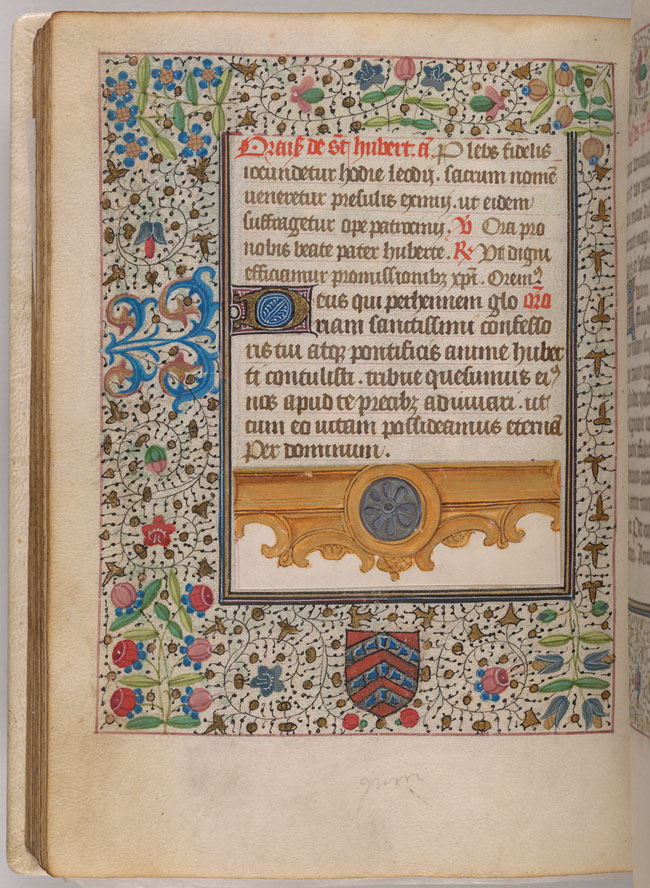 Oraiso de st hubert. a. Plebs fidelis
iocundetur hodie leodij. sacrum nome
ueneretur presulis eximij. ut eidem
suffragetur ope patrocinij. V Ora pro
nobis beate pater huberte. R Vt digni
efficiamur promissionibz xpi. Orem9
Deus qui perhennem glo oro
riam sanctissimi confesso
ris tui atqz pontificis anime huber
ti contulisti. tribue quesumus ei9
nos apud te precibz adiuuari. ut
cum eo uitam possideamus eterna
Per dominum.